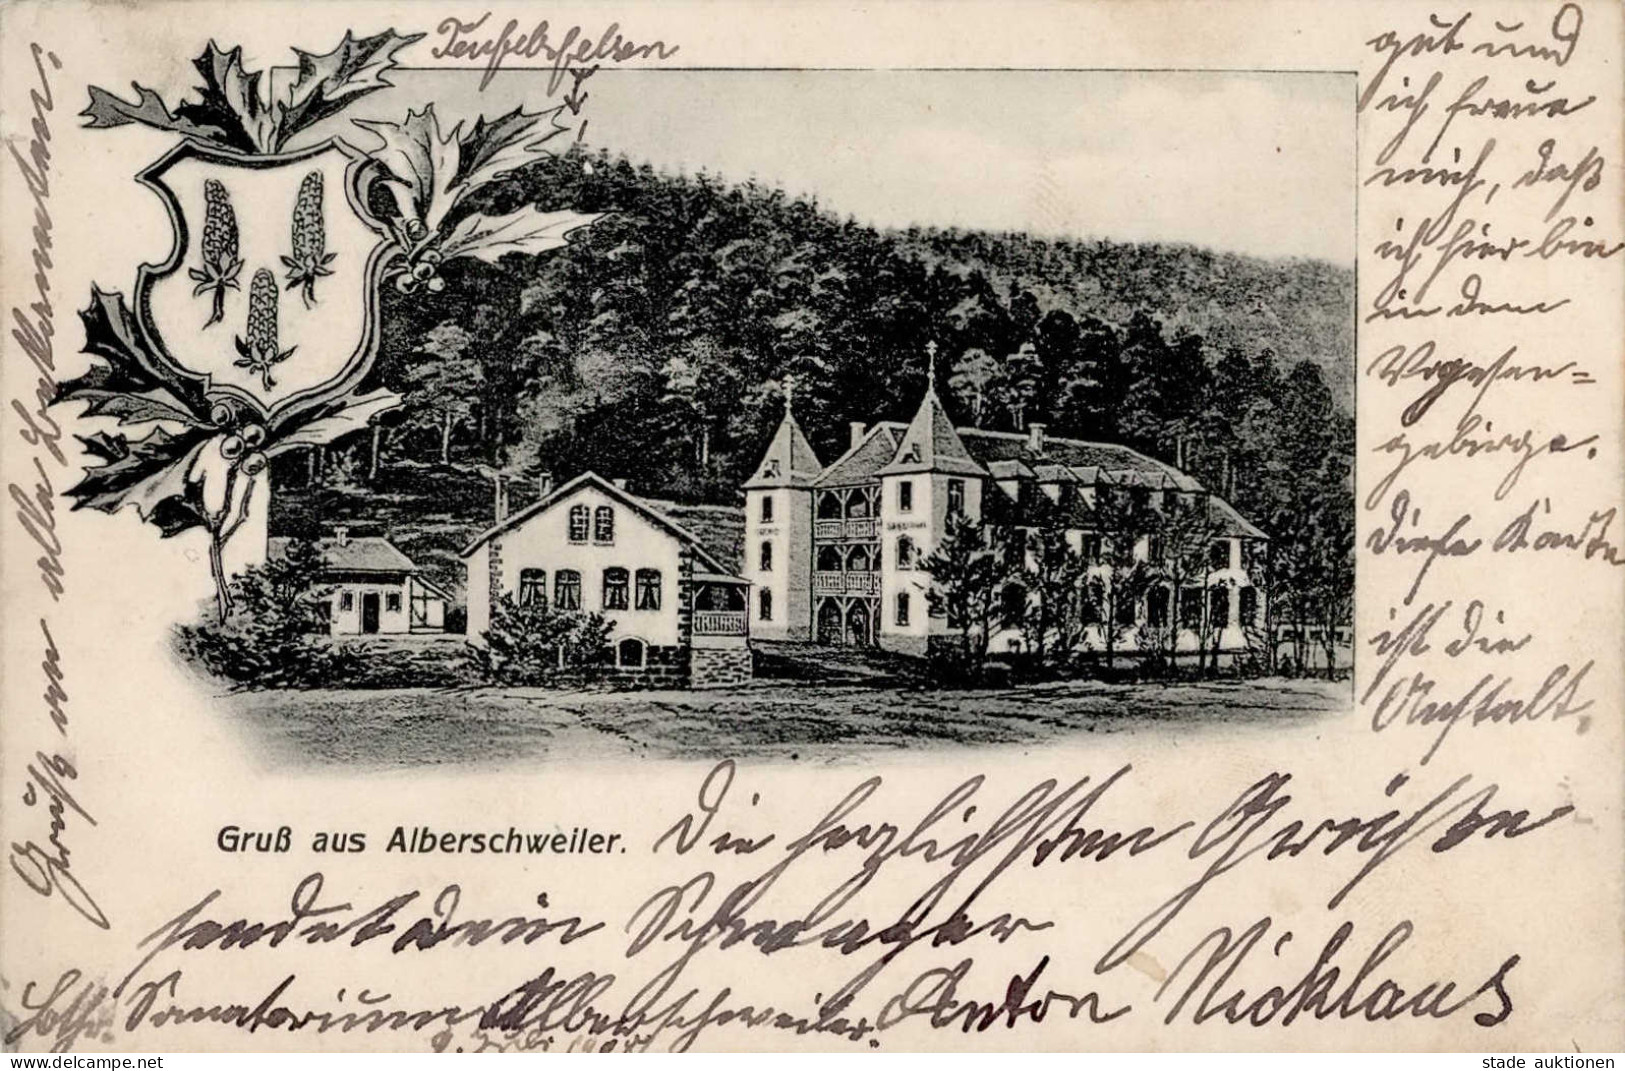 Teufelsfelsen
gut und
ich freue
mich, daß
ich hier bin
in dem
Vogesen=
gebirge.
Diese Karte
ist die
Anstalt.
Gruß aus Alberschweiler.
Die herzlichsten Grüße
sendet dein Schwager
Lothr. Sanatorium Alberschweiler. Anton Nicklaus
9. Juli
Gruß an alle Bekannten.
stade auktionen